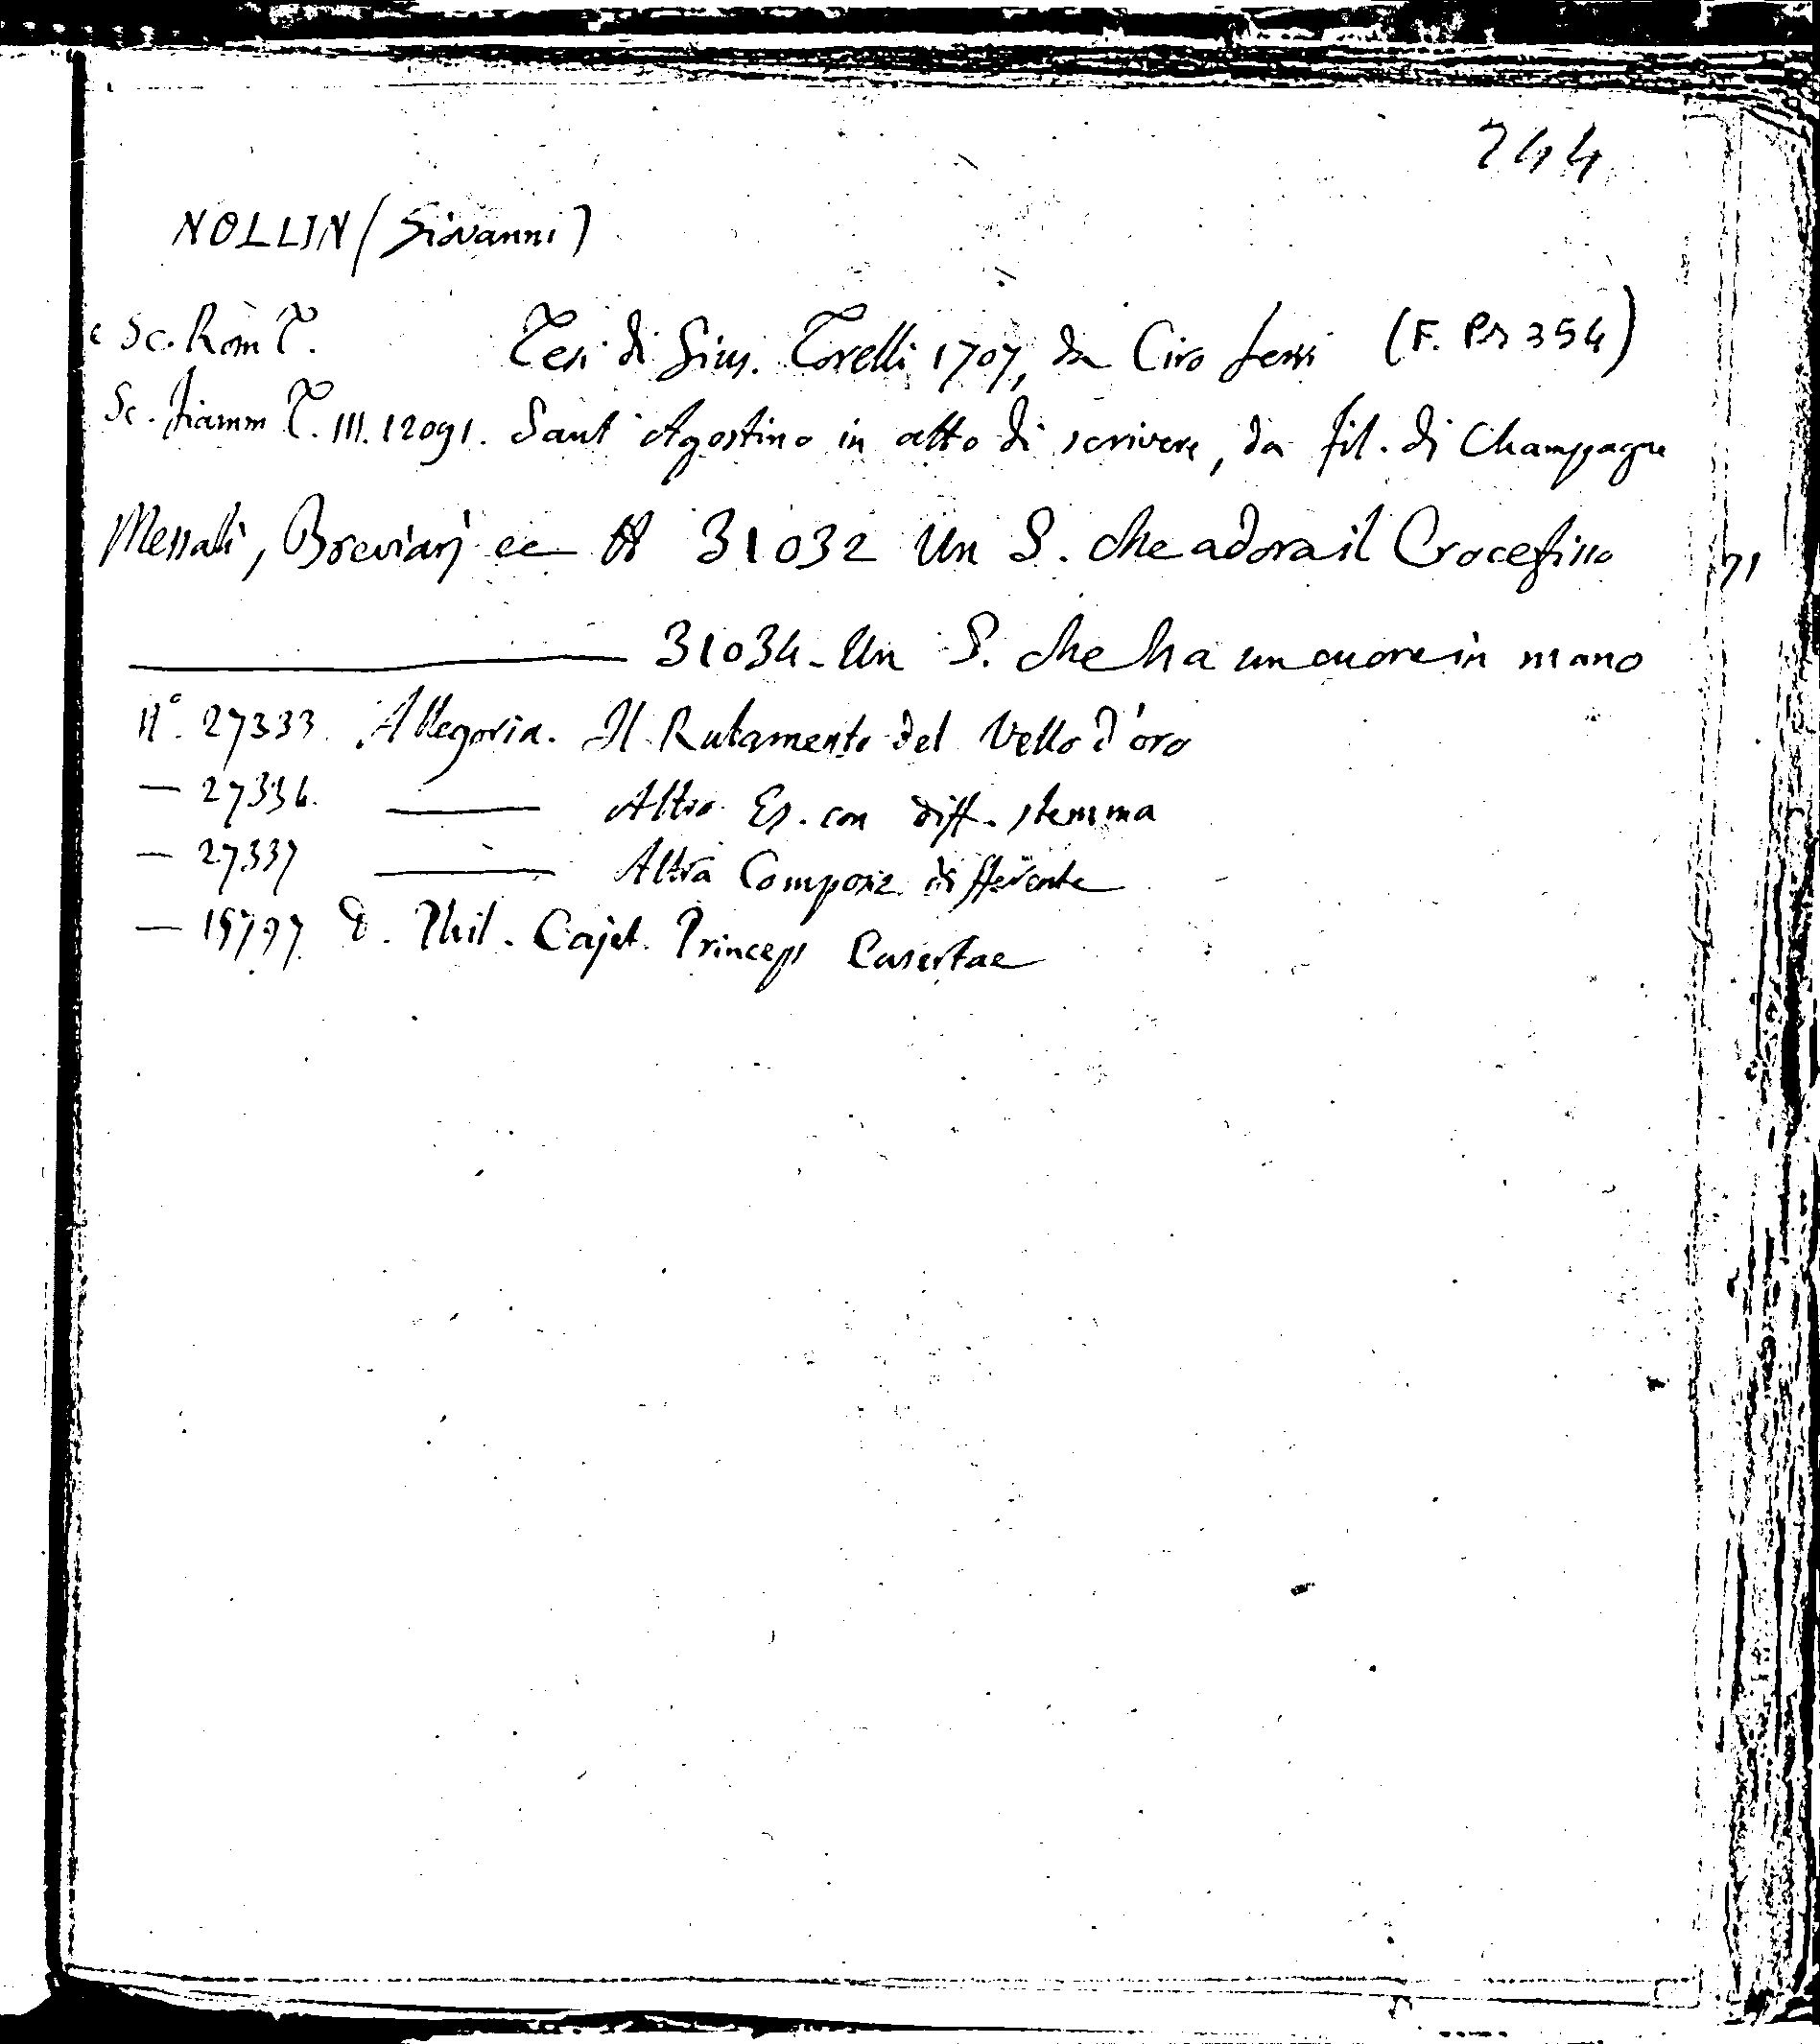 244
NOLLIN (Giovanni)
Sc. Rom T. Tesi di Gius. Torelli 1707, da Ciro Ferri (F. Ps 354)
Sc. Fiamm T. III. 12091. Sant Agostino in atto di scrivere, da Fil. di Champagne
Messali, Breviarj ec N 31032 Un S. che adora il Crocefisso
31034 - Un S. che ha un cuore in mano
N°. 27333. Allegoria. Il Rubamento del Vello d'oro
— 27334. —— Altro Es. con diff. stemma
— 27337 —— Altra Composiz. differente
— 15797 D. Phil. Cajet. Princeps Casertae